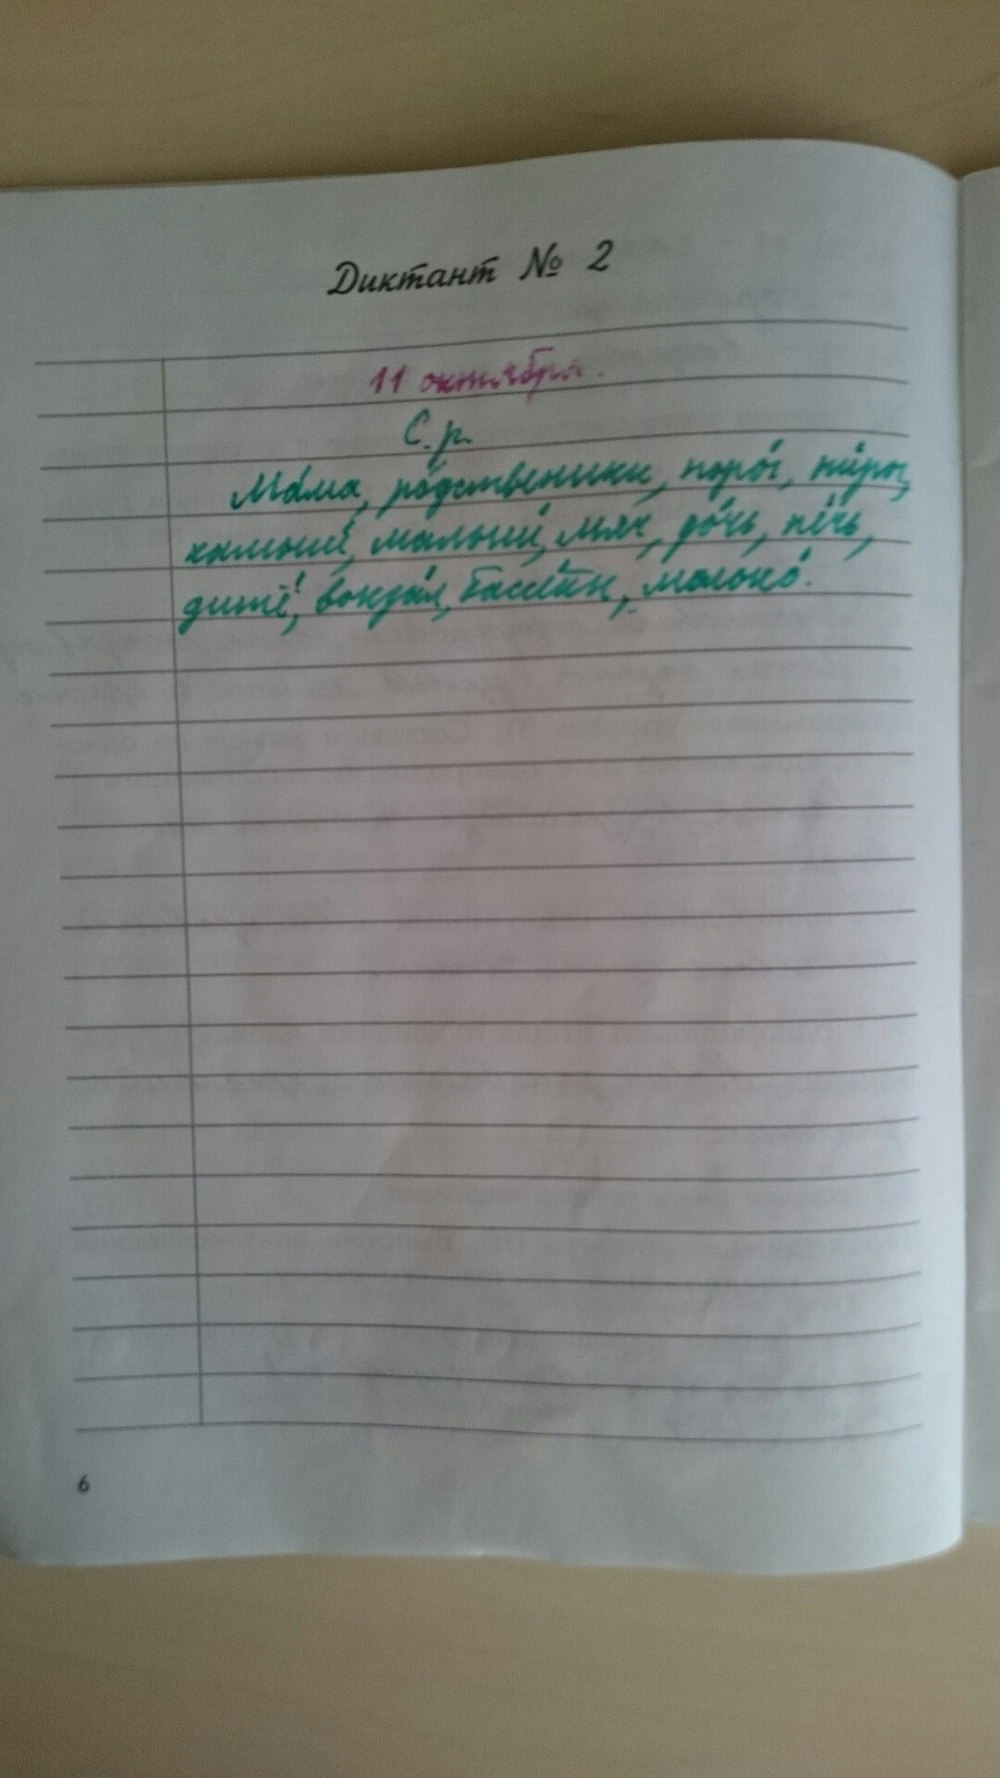 Диктант № 2
11 октября.
С. р.
Ма́ма, ро́дственники, поро́г, пиро́г,
камыши́, малыши́, мяч, до́чь, пе́чь,
дитё, вокза́л, бассе́йн, молоко́.
6